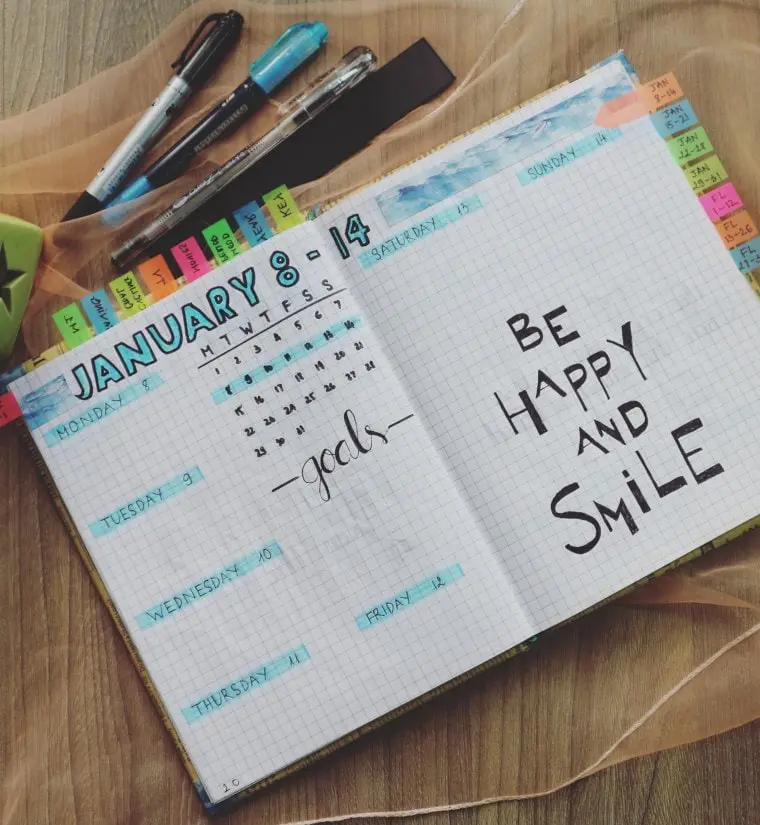 JANUARY 8-14
M T W T F S S
1 2 3 4 5 6 7
8 9 10 11 12 13 14
15 16 17 18 19 20 21
22 23 24 25 26 27 28
29 30 31
MONDAY 8
-goals-
TUESDAY 9
WEDNESDAY 10
THURSDAY 11
FRIDAY 12
20
SATURDAY 13
SUNDAY 14
BE
HAPPY
AND
SMiLE
KEY
YEAR
JAN
8-14
JAN
15-21
JAN
22-28
JAN
29-31
FL
1-12
FL
13-26
FL